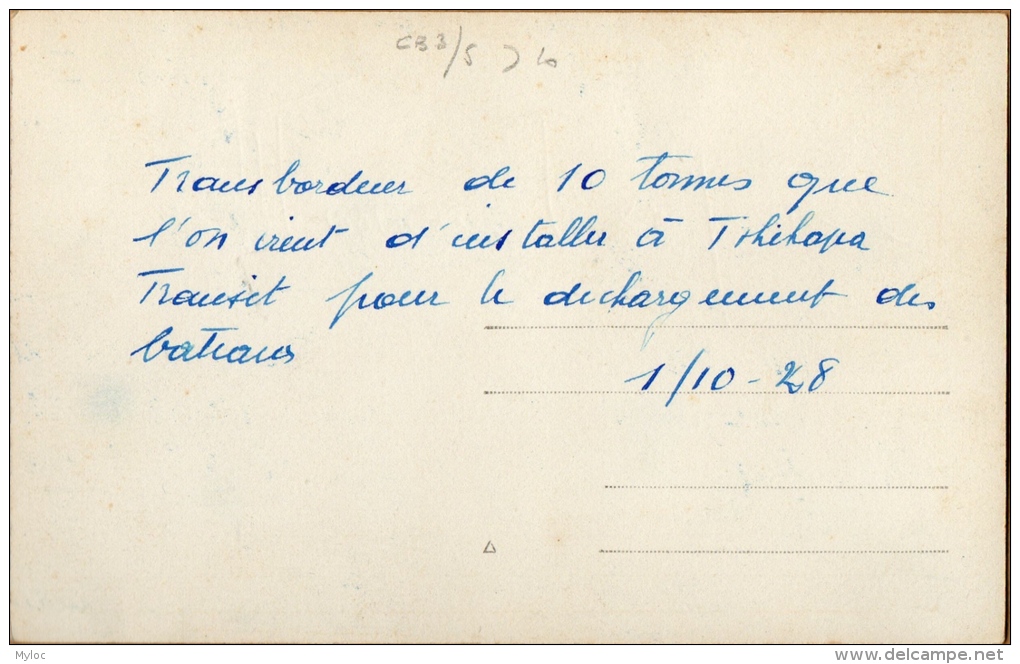 CB3/5
Transbordeur de 10 tonnes que
l'on vient d'installer à Tshikapa
Transit pour le dechargement des
bateaux
1/10-28
Myloc
delcampe.net